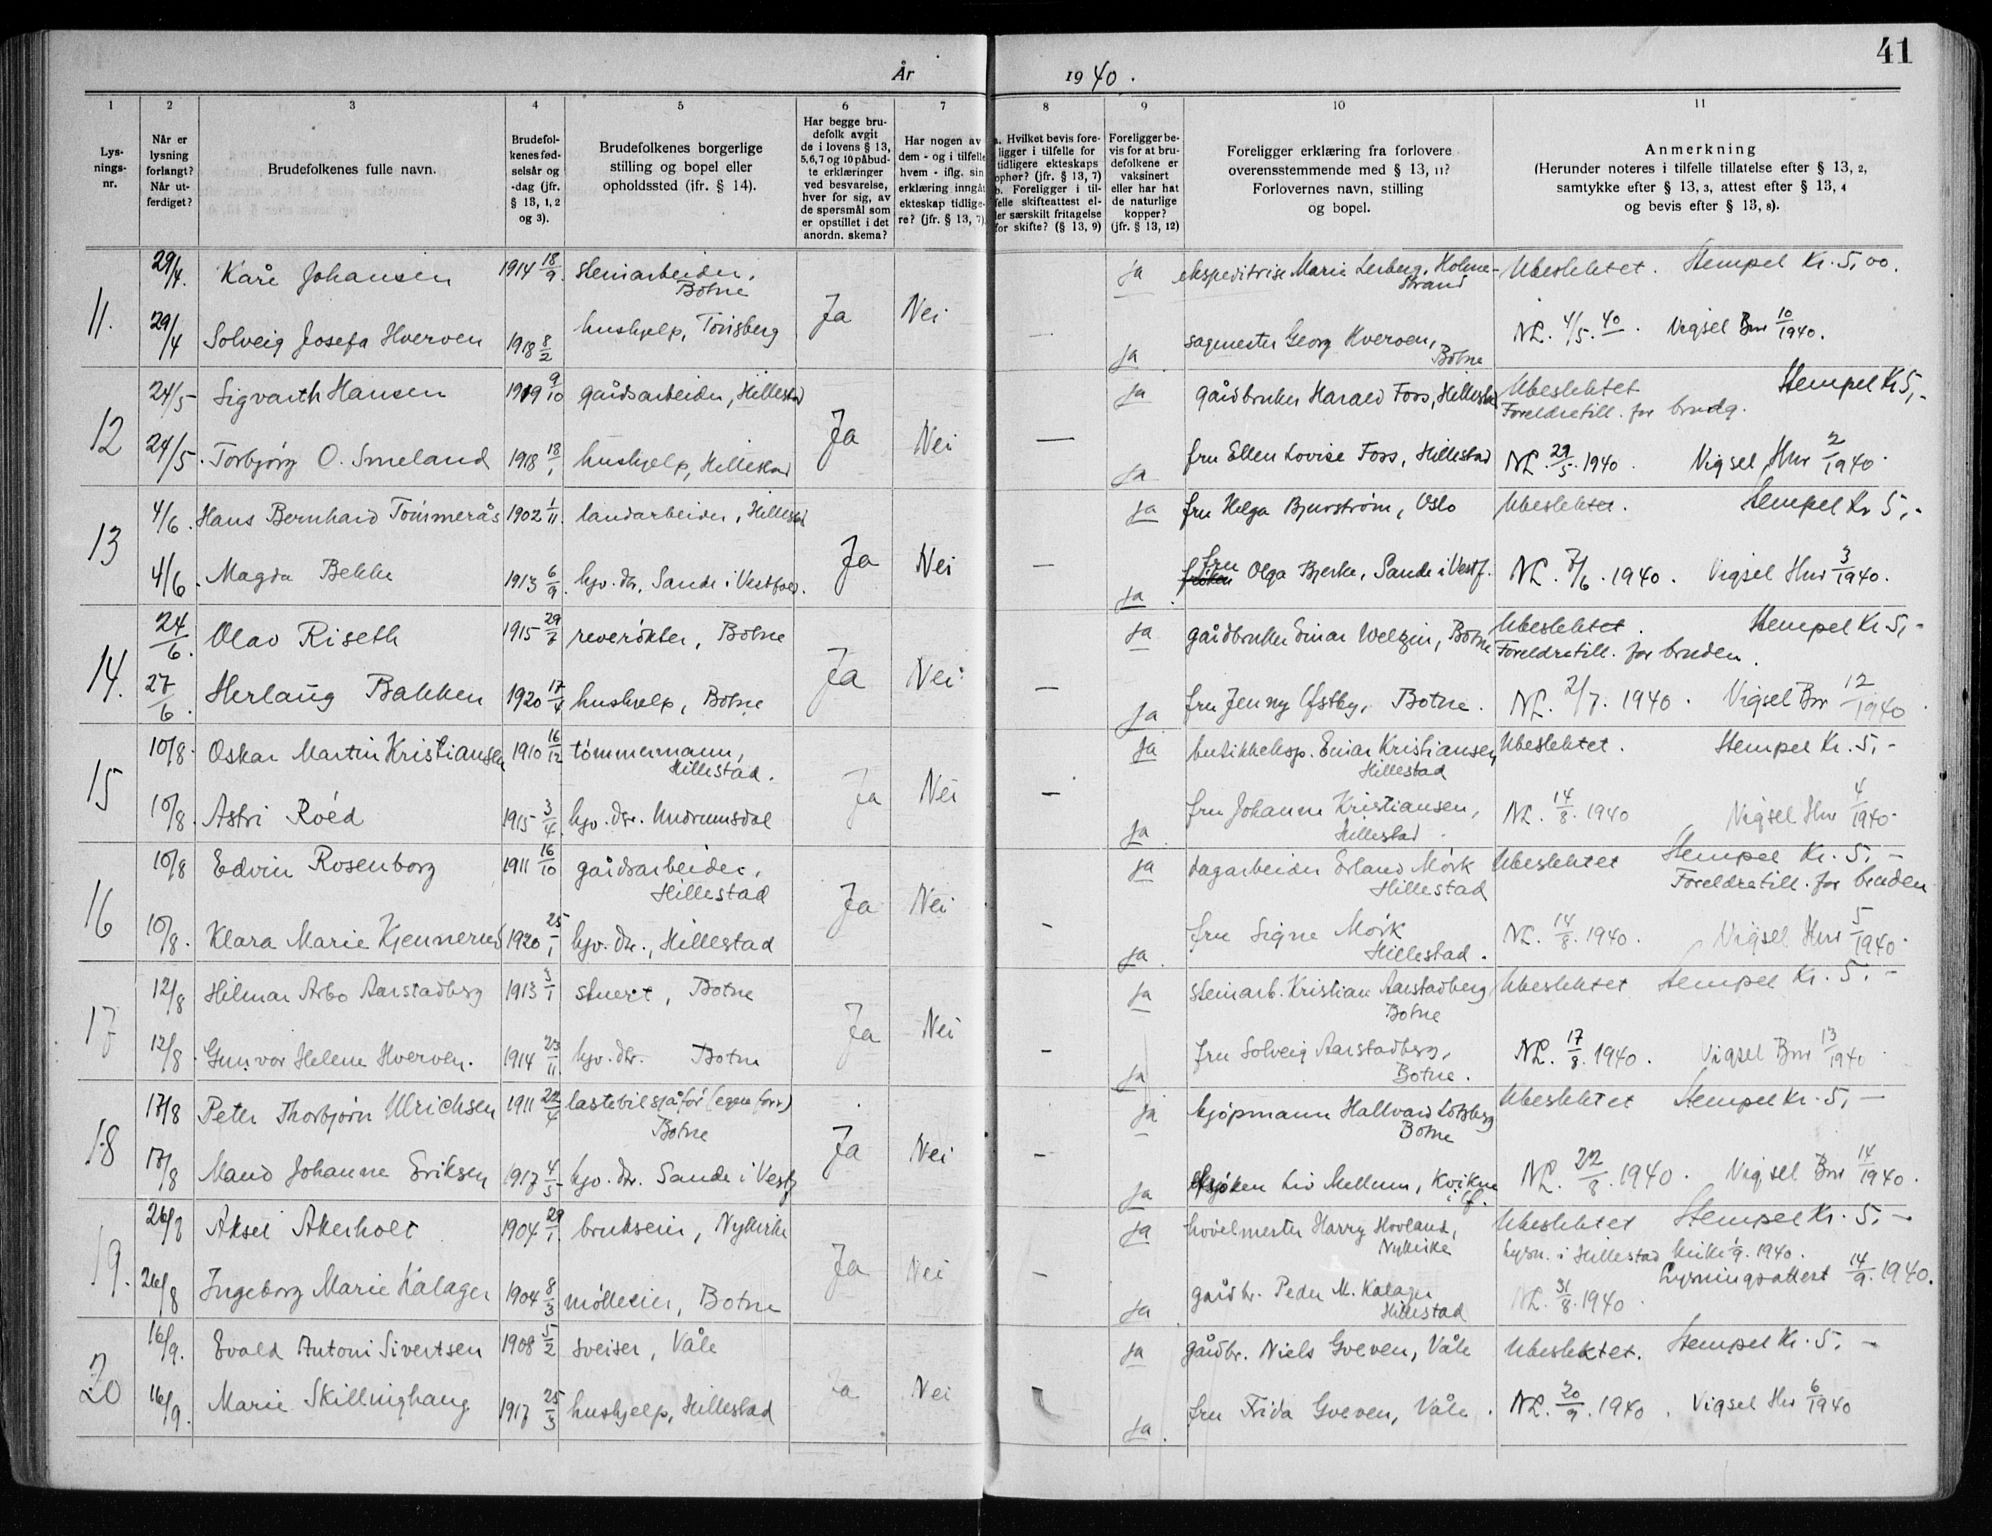 41
År 1940.
1 2 3 4 5 6 7 8 9 10 11
Lys-
nings-
nr.
Når er
lysning
forlangt?
Når ut-
ferdiget?
Brudefolkenes fulle navn.
Brudefol-
kenes fød-
selsår og
-dag (jfr.
§ 13, 1, 2
og 3).
Brudefolkenes borgerlige
stilling og bopel eller
opholdssted (ifr. § 14).
Har begge bru-
defolk avgit
de i lovens § 13,
5,6,7 og 10 påbud-
te erklæringer
ved besvarelse,
hver for sig, av
de spørsmål som
er opstillet i det
anordn. skema?
Har nogen av
dem - og i tilfelle
hvem - iflg. sin
erklæring inngåt
ekteskap tidlige-
re? (jfr. § 13, 7)
a. Hvilket bevis fore-
ligger i tilfelle for
tidligere ekteskaps
ophør? (jfr. § 13, 7)
b. Foreligger i til-
felle skifteattest el-
ler særskilt fritagelse
for skifte? (§ 13, 9)
Foreligger be-
vis for at bru-
defolkene er
vaksinert
eller har hat
de naturlige
kopper?
(jfr. § 13, 12)
Foreligger erklæring fra forlovere
overensstemmende med § 13, 11?
Forlovernes navn, stilling
og bopel.
Anmerkning
(Herunder noteres i tilfelle tillatelse efter § 13, 2,
samtykke efter § 13, 3, attest efter § 13, 4
og bevis efter § 13, 8).
11. 29/4. Kåre Johansen 1914 18/9. steinarbeider, Botne Ja Nei ja ekspeditrise Marie Lerberg, Holme-strand Ubeslektet. Stempel Kr. 5,00.
29/4 Solveig Josefa Hverven 1918 8/2 hushjelp, Tønsberg — ja sagmester Georg Hverven, Botne NL. 4/5. 40. Vigsel Bnr 10/1940.
12 24/5 Sigvarth Hansen 1919 9/10 gårdsarbeider, Hillestad Ja Nei — ja gårdbruker Harald Foss, Hillestad Ubeslektet Stempel Kr 5,-
Foreldretill. for brudg.
24/5. Torbjørg O. Smeland 1918 18/1 hushjelp, Hillestad ja fru Ellen Lovise Foss, Hillestad NL. 29/5. 1940. Vigsel Hnr 2/1940.
13 4/6. Hans Bernhard Tømmerås 1902 1/11. landarbeider, Hillestad Ja Nei — ja fru Helga Bjurstrøm, Oslo Ubeslektet. Stempel Kr 5,-
4/6. Magda Bekke 1913 6/9. hjv. dtr. Sande i Vestfold. ja. frøken fru Olga Bjerke, Sande i Vestf. NL. 7/6. 1940. Vigsel Hnr 3/1940.
14. 24/6. Olav Riseth 1915 29/7 reverøkter, Botne Ja Nei — ja gårdbruker Einar Welzin, Botne Ubeslektet. Stempel Kr 5,-
Foreldretill. for bruden.
27/6. Herlaug Bakken 1920 17/4 hushjelp, Botne ja fru Jenny Østby, Botne. NL. 2/7. 1940. Vigsel Bnr 12/1940
15 10/8. Oskar Martin Kristiansen 1910 16/12 tømmermann, Hillestad. Ja Nei — ja butikkeksp. Einar Kristiansen, Hillestad Ubeslektet. Stempel Kr. 5,-
10/8. Astri Røed 1915 3/4. hjv. dtr. Undrumsdal ja fru Johanne Kristiansen, Hillestad. NL. 14/8. 1940 Vigsel Hnr 4/1940.
16 10/8 Edvin Rosenborg 1911 16/10 gårdsarbeider, Hillestad Ja Nei - ja dagarbeider Erland Mørk Hillestad Ubeslektet Stempel Kr. 5,-
Foreldretill. for bruden
10/8. Klara Marie Kjennerud 1920 25/1 hjv. dtr., Hillestad ja. fru Signe Mørk Hillestad. NL. 14/8. 1940. Vigsel Hnr 5/1940.
17 12/8 Hilmar Arbo Aarstadberg 1913 3/1 stuert, Botne Ja Nei - ja steinarb. Kristian Aarstadberg Botne Ubeslektet Stempel Kr. 5,-
12/8. Gunvor Helene Hverven. 1914 23/11 hjv. dtr. Botne ja fru Solveig Aarstadberg, Botne. NL. 17/8. 1940. Vigsel Bnr 13/1940
18 17/8 Peter Thorbjørn Ulrichsen 1911 22/4 lastebilsjåfør (egen forr) Botne Ja Nei - ja kjøpmann Hallvard Lotsberg Botne Ubeslektet Stempel Kr. 5,-
17/8 Maud Johanne Eriksen 1917 4/5. hjv. dtr. Sande i Vestf ja frøken Liv Mellum, Kvikne NL. 22/8. 1940. Vigsel Bnr 14/1940.
19. 26/8 Aksel Akerholt 1904 29/1. brukseier, Nykirke Ja Nei - ja høvelmester Harry Hovland, Nykirke Ubeslektet Stempel Kr. 5,-
Lysn. i Hillestad kirke 1/9. 1940.
Lysningsattest 14/9. 1940.
26/8 Ingeborg Marie Kalager 1904 8/3 mølleeier, Botne ja gårdbr. Peder M. Kalager Hillestad NL. 31/8. 1940.
20 16/9. Evald Antoni Sivertsen 1908 5/2 sveiser, Våle Ja Nei ja gårdbr. Niels Gveven, Våle Ubeslektet. Stempel Kr. 5,-
16/9. Marie Skillinghaug 1917 25/3 hushjelp, Hillestad ja. fru Frida Gveven, Våle. NL. 20/9. 1940. Vigsel Hnr 6/1940